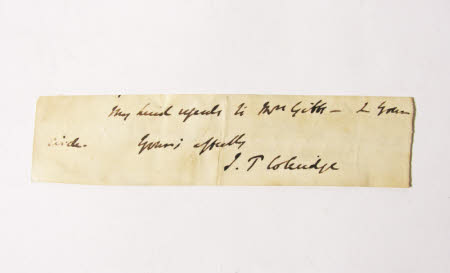 My kind regards to Mrs Gibbs - & your
circle. Yours affectly
J. T Coleridge